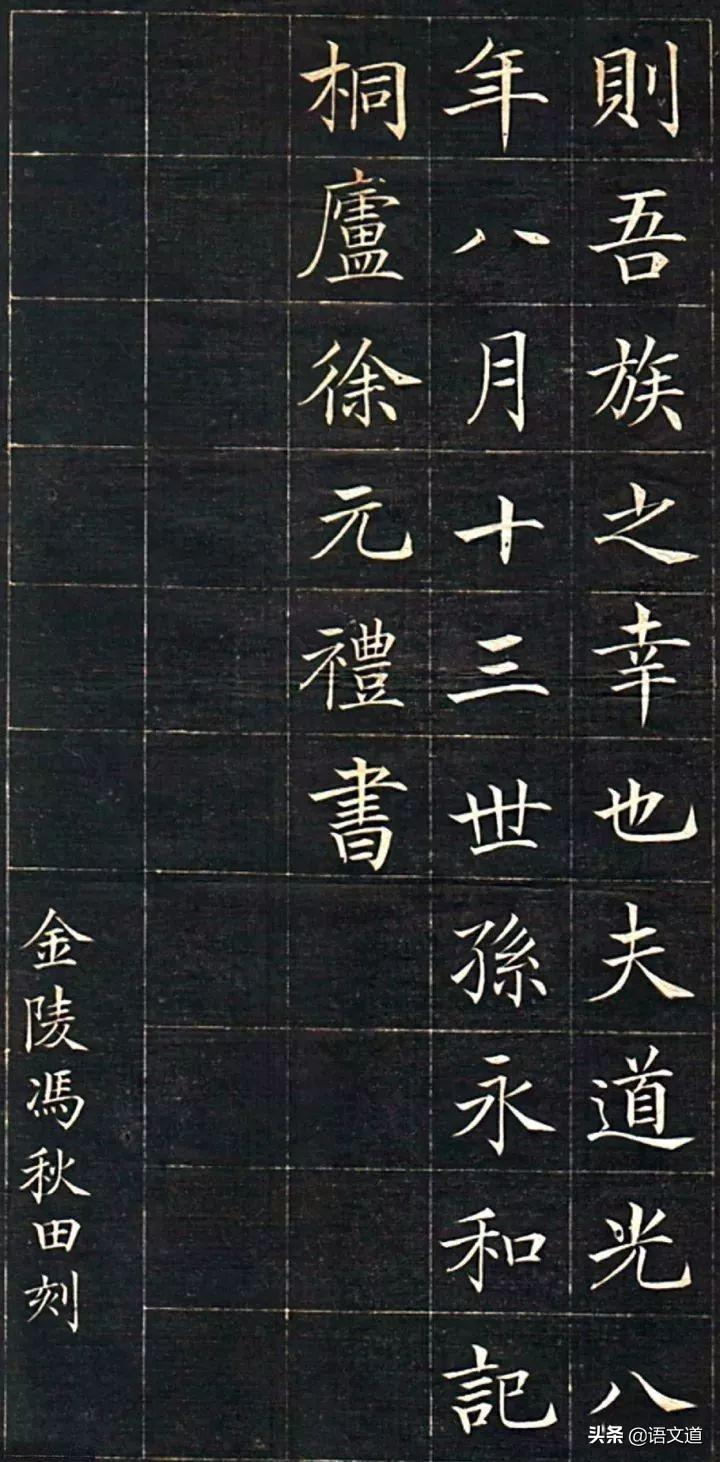 則吾族之幸也夫道光八
年八月十三世孫永和記
桐廬徐元禮書
金陵馮秋田刻
头条 @语文道